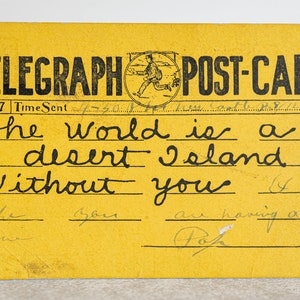 ELEGRAPH POST-CA
7 Time Sent
he World is a
desert Island
Without you
you are having a
Pop